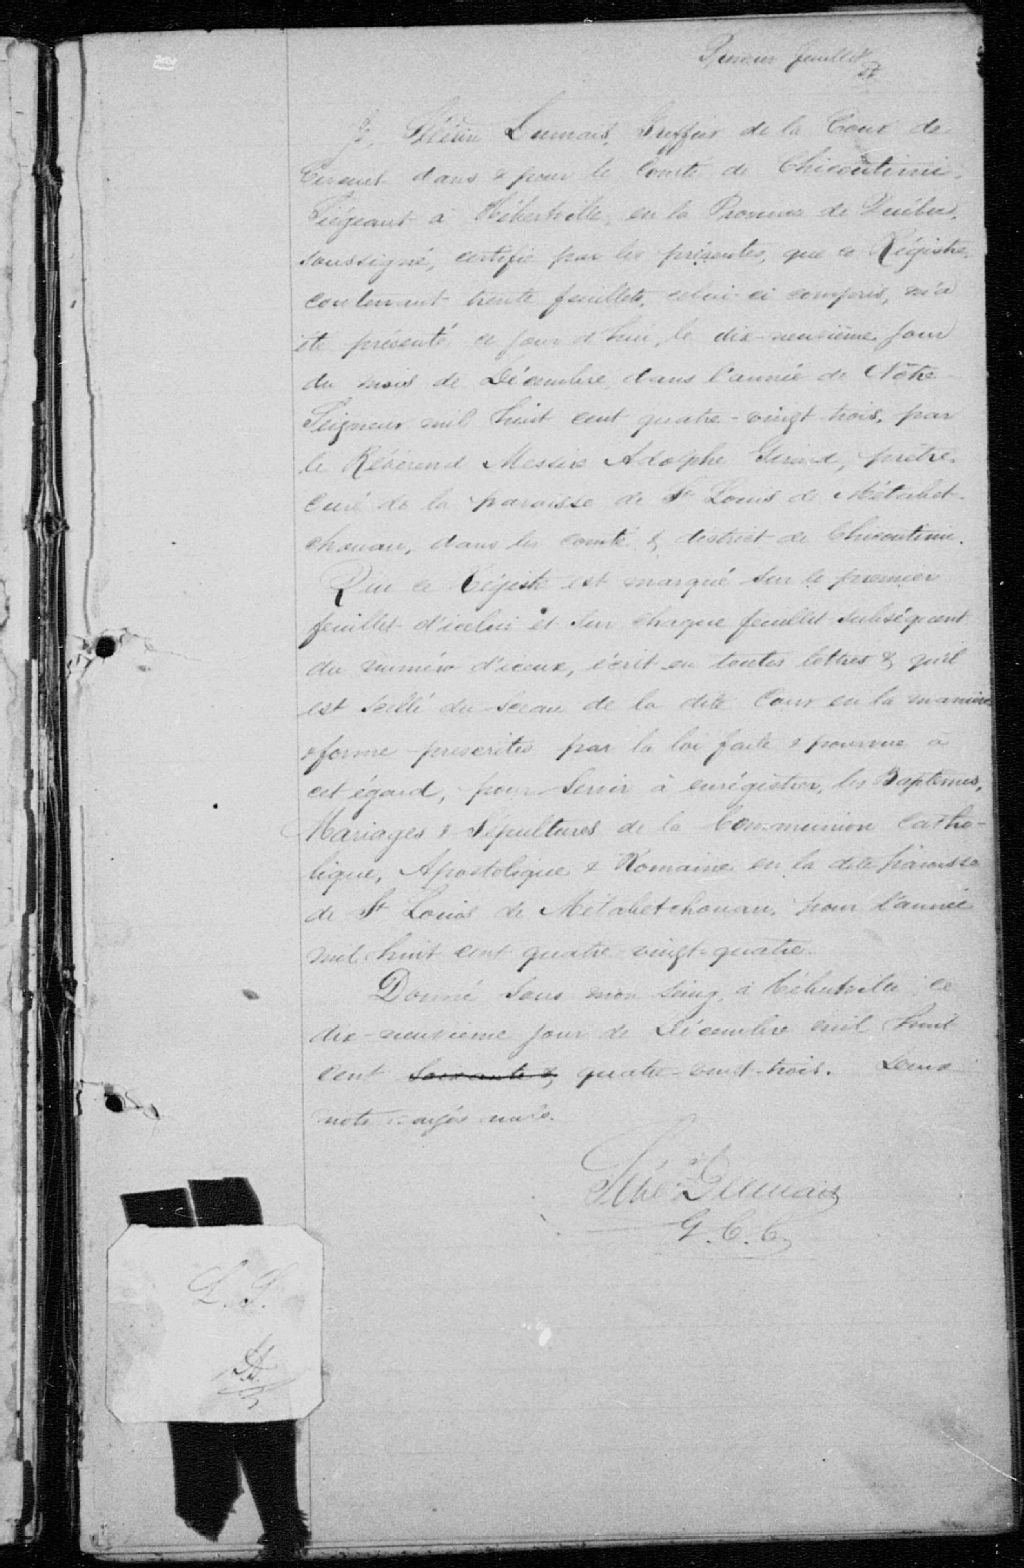 Premier feuillet
Je, Dumais, Greffier de la Cour de
Circuit dans & pour le Comté de Chicoutimi,
Siégeant à Hébertville, en la Province de Québec,
soussigné, certifie par les présentes, que ce Régistre,
contenant trente feuillets, celui-ci compris, m'a
été présenté ce jour d'hui, le dix-neuvième jour
du mois de Décembre, dans l'année de Nôtre
Seigneur mil huit cent quatre-vingt trois, par
le Révérend Messire Adolphe Girard, prêtre,
curé de la paroisse de St Louis de Métabet-
chouan, dans les comté & district de Chicoutimi.
Que ce Régistre est marqué sur le premier
feuillet d'icelui et sur chaque feuillet subséquent
du numéro d'iceux, écrit en toutes lettres & qu'il
est scellé du sceau de la dite Cour en la manière
& forme prescrites par la loi faite & pourvue à
cet égard, pour servir à enrégistrer, les Baptêmes,
Mariages & Sépultures de la Communion Catho-
lique, Apostolique & Romaine en la dite paroisse
de St Louis de Métabetchouan, pour l'année
mil huit cent quatre vingt-quatre.
Donné sous mon Seing, à Hébertville ce
dix-neuvième jour de Décembre mil huit
cent soixante & quatre-vingt-trois. Deux
mots rayés nuls.
Dumais
G. C. C.
L. S.